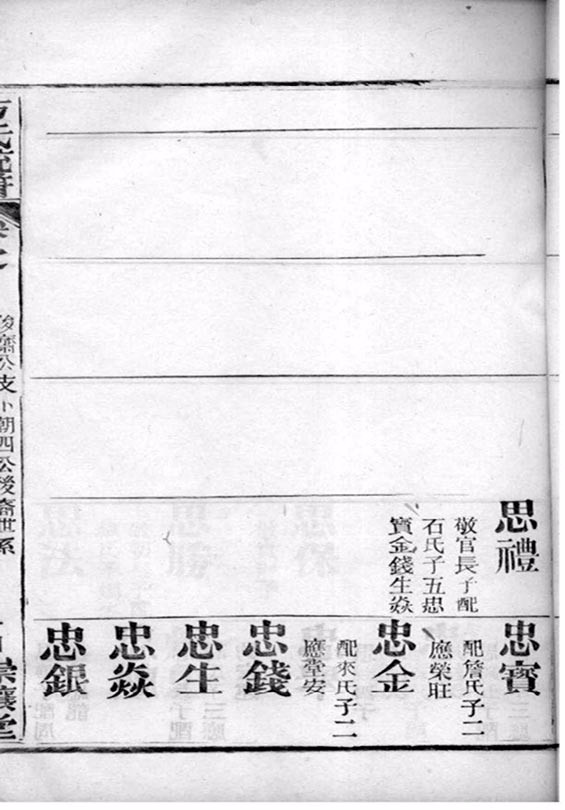 思禮
敬官長子配
石氏子五忠
寶金錢生焱
忠寶
配詹氏子二
應榮旺
忠金
配來氏子二
應堂安
忠錢
忠生
忠焱
忠銀
公支小朝四公後裔世系